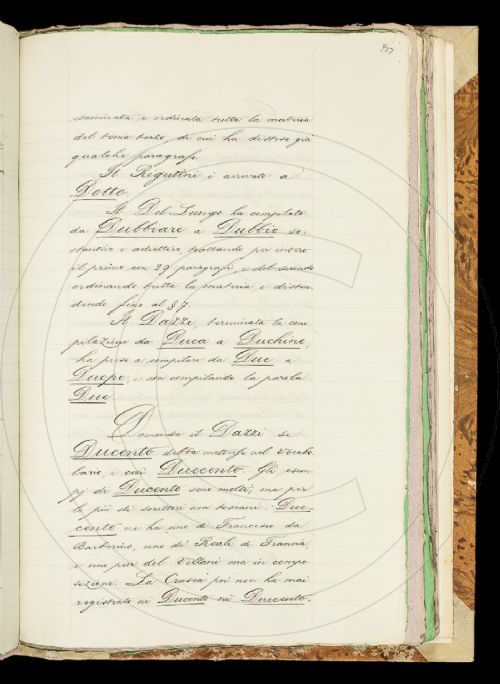 esaminata e ordinata tutta la materia
del tema terzo, di cui ha disteso già
qualche paragrafo.
Il Rigutini è arrivato a
Dotto.
Il Del Lungo ha compilato
da Dubbiare a Dubbio so-
stantivo e adiettivo, trattando per intero
il primo con 29 paragrafi, e del secondo
ordinando tutta la materia e disten-
dendo fino al § 7.
Il Dazzi, terminata la com-
pilazione da Duca a Duchino,
ha preso a compilare da Due a
Duopo, e sta compilando la parola
Due.
Domanda il Dazzi se
Ducento debba mettersi nel Vocabo-
lario, e così Duecento. Gli esem-
pj di Ducento sono molti, ma per
lo più di scrittori non toscani: Due-
cento ne ha uno di Francesco da
Barberino, uno di Reali di Francia
e uno pur del Villani ma in compo-
sizione. La Crusca poi non ha mai
registrato nè Ducento nè Duecento.